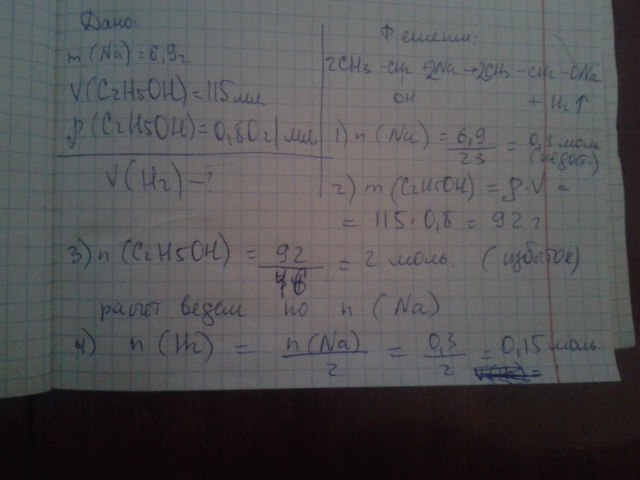 Дано:
m(Na)=6,9г
V(C2H5OH)=115мл
ρ(C2H5OH)=0,80г/мл
V(H2)-?
Решение:
2CH3-CH2+2Na→2CH3-CH2-ONa
OH
+ H2↑
1) n(Na) = 6,9/23 = 0,3 моль
(недост.)
2) m(C2H5OH) = ρ·V =
= 115·0,8 = 92 г
3) n(C2H5OH) = 92/46 = 2 моль. (избыток)
расчёт ведем по n(Na)
4) n(H2) = n(Na)/2 = 0,3/2 = 0,15 моль